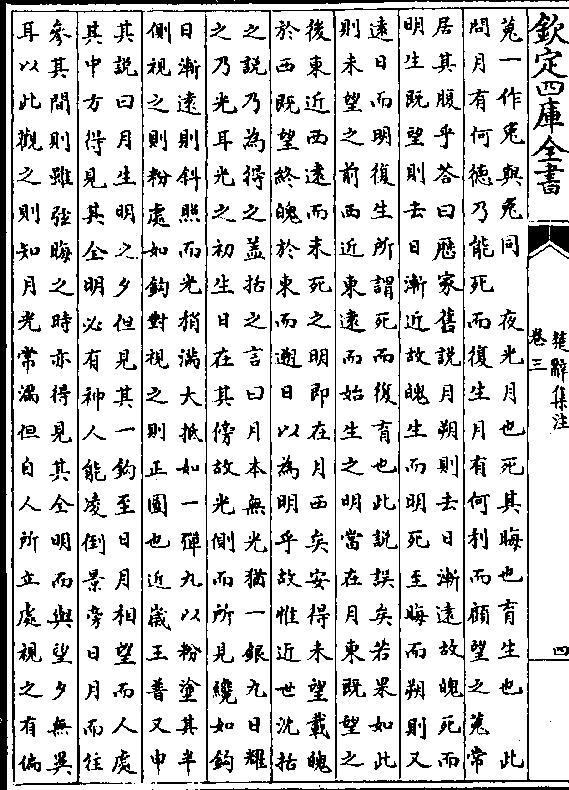 欽定四庫全書
楚辭集注
卷三
四
菟一作兎與兎同　夜光月也死其晦也育生也　此
問月有何德乃能死而復生月有何利而顧望之菟常
居其腹乎荅曰厯家舊説月朔則去日漸遠故魄死而
明生既望則去日漸近故魄生而明死至晦而朔則又
遠日而明復生所謂死而復育也此説誤矣若果如此
則未望之前西近東遠而始生之明當在月東既望之
後東近西遠而未死之明即在月西矣安得未望載魄
於西既望終魄於東而遡日以為明乎故惟近世沈括
之説乃為得之蓋括之言曰月本無光猶一銀丸日耀
之乃光耳光之初生日在其傍故光側而所見纔如鈎
日漸遠則斜照而光稍滿大抵如一彈丸以粉塗其半
側視之則粉處如鈎對視之則正圓也近歲王普又申
其説曰月生明之夕但見其一鈎至日月相望而人處
其中方得見其全明必有神人能凌倒景旁日月而往
參其間則雖弦晦之時亦得見其全明而與望夕無異
耳以此觀之則知月光常滿但自人所立處視之有偏